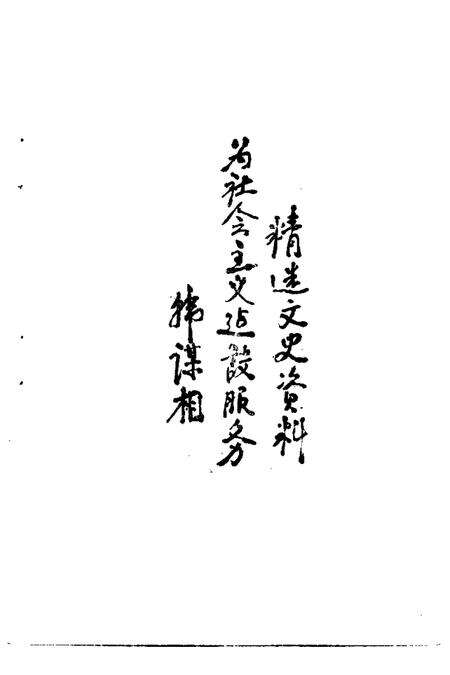 精选文史资料
为社会主义建设服务
韩谋相